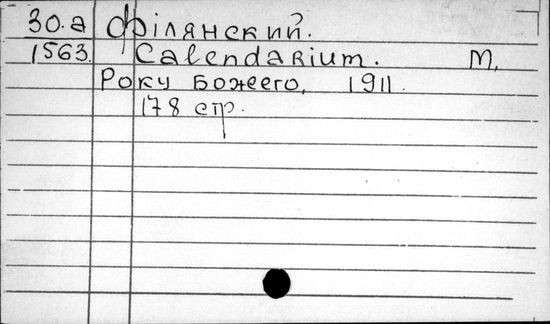 30.а Філянский.
1563. Calendarium. М,
Року Божеего, 1911.
178 стр.